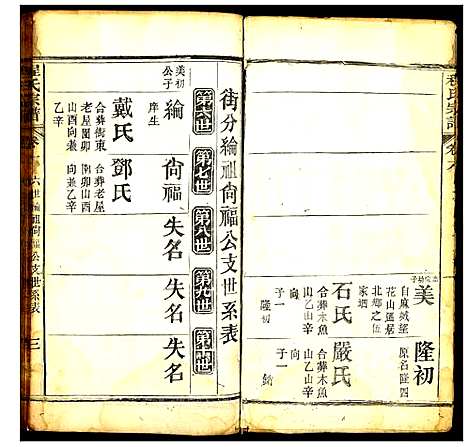 程氏宗譜
志宗幼子
美
自麻城望
花山遷居
北鄉之伍
家塆
石氏
合葬木魚
山乙山辛
向
子一
隆初
隆初
原名隆四
嚴氏
合葬木魚
山乙山辛
向
子一
綸
街分綸祖尙福公支世系表
第六世
第七世
第八世
第九世
美初
公子
綸
庠生
戴氏
合葬衝東
老屋園卯
山酉向兼
乙辛
尙福
鄧氏
合葬老屋
園卯山酉
向兼乙辛
失名
失名
失名
程氏宗譜
六世綸祖尙福公支世系表
三